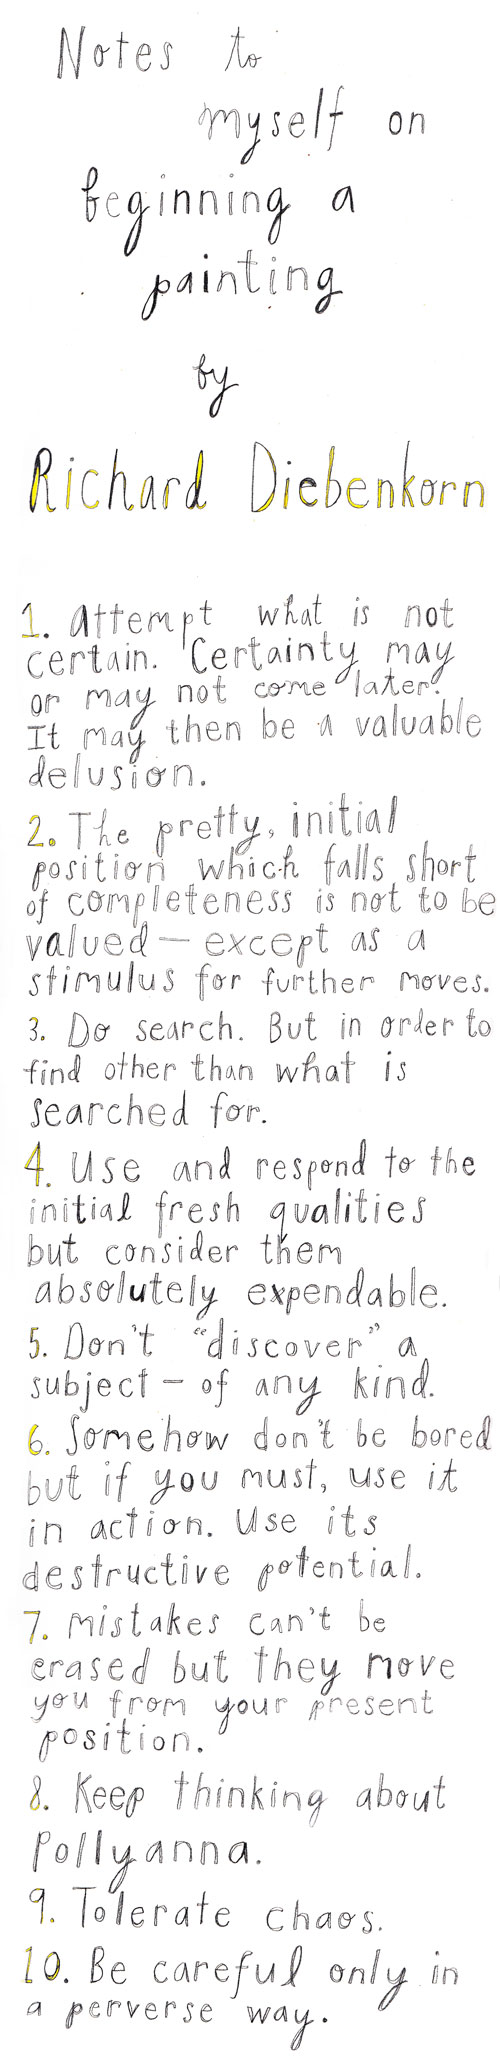 Notes to
myself on
beginning a
painting
by
Richard Diebenkorn
1. attempt what is not
certain. Certainty may
or may not come later.
It may then be a valuable
delusion.
2. The pretty, initial
position which falls short
of completeness is not to be
valued — except as a
stimulus for further moves.
3. Do search. But in order to
find other than what is
searched for.
4. Use and respond to the
initial fresh qualities
but consider them
absolutely expendable.
5. Don't "discover" a
subject — of any kind.
6. Somehow don't be bored
but if you must, use it
in action. Use its
destructive potential.
7. mistakes can't be
erased but they move
you from your present
position.
8. Keep thinking about
Pollyanna.
9. Tolerate chaos.
10. Be careful only in
a perverse way.